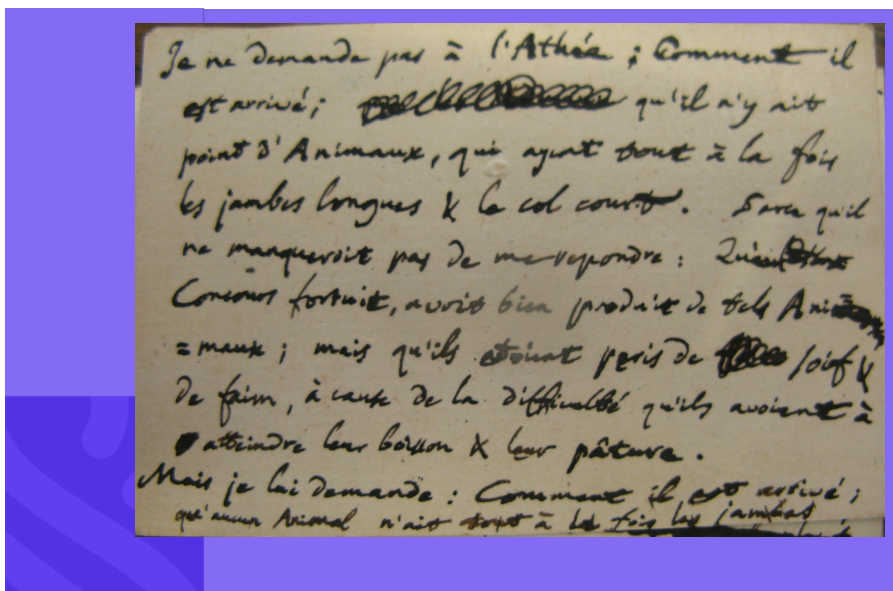 Je ne demande pas à l'Athée ; Comment il
est arrivé ; qu'il n'y ait
point d'Animaux, qui ayent tout à la fois
les jambes longues & le col court. Parce qu'il
ne manqueroit pas de me repondre : Qu'un
Concours fortuit, avoit bien produit de tels Ani
=maux ; mais qu'ils etoient peris de soif &
de faim, à cause de la difficulté qu'ils avoient à
atteindre leur boisson & leur pâture.
Mais je lui demande : Comment il est arrivé ;
qu'aucun Animal n'ait tout à la fois les jambes